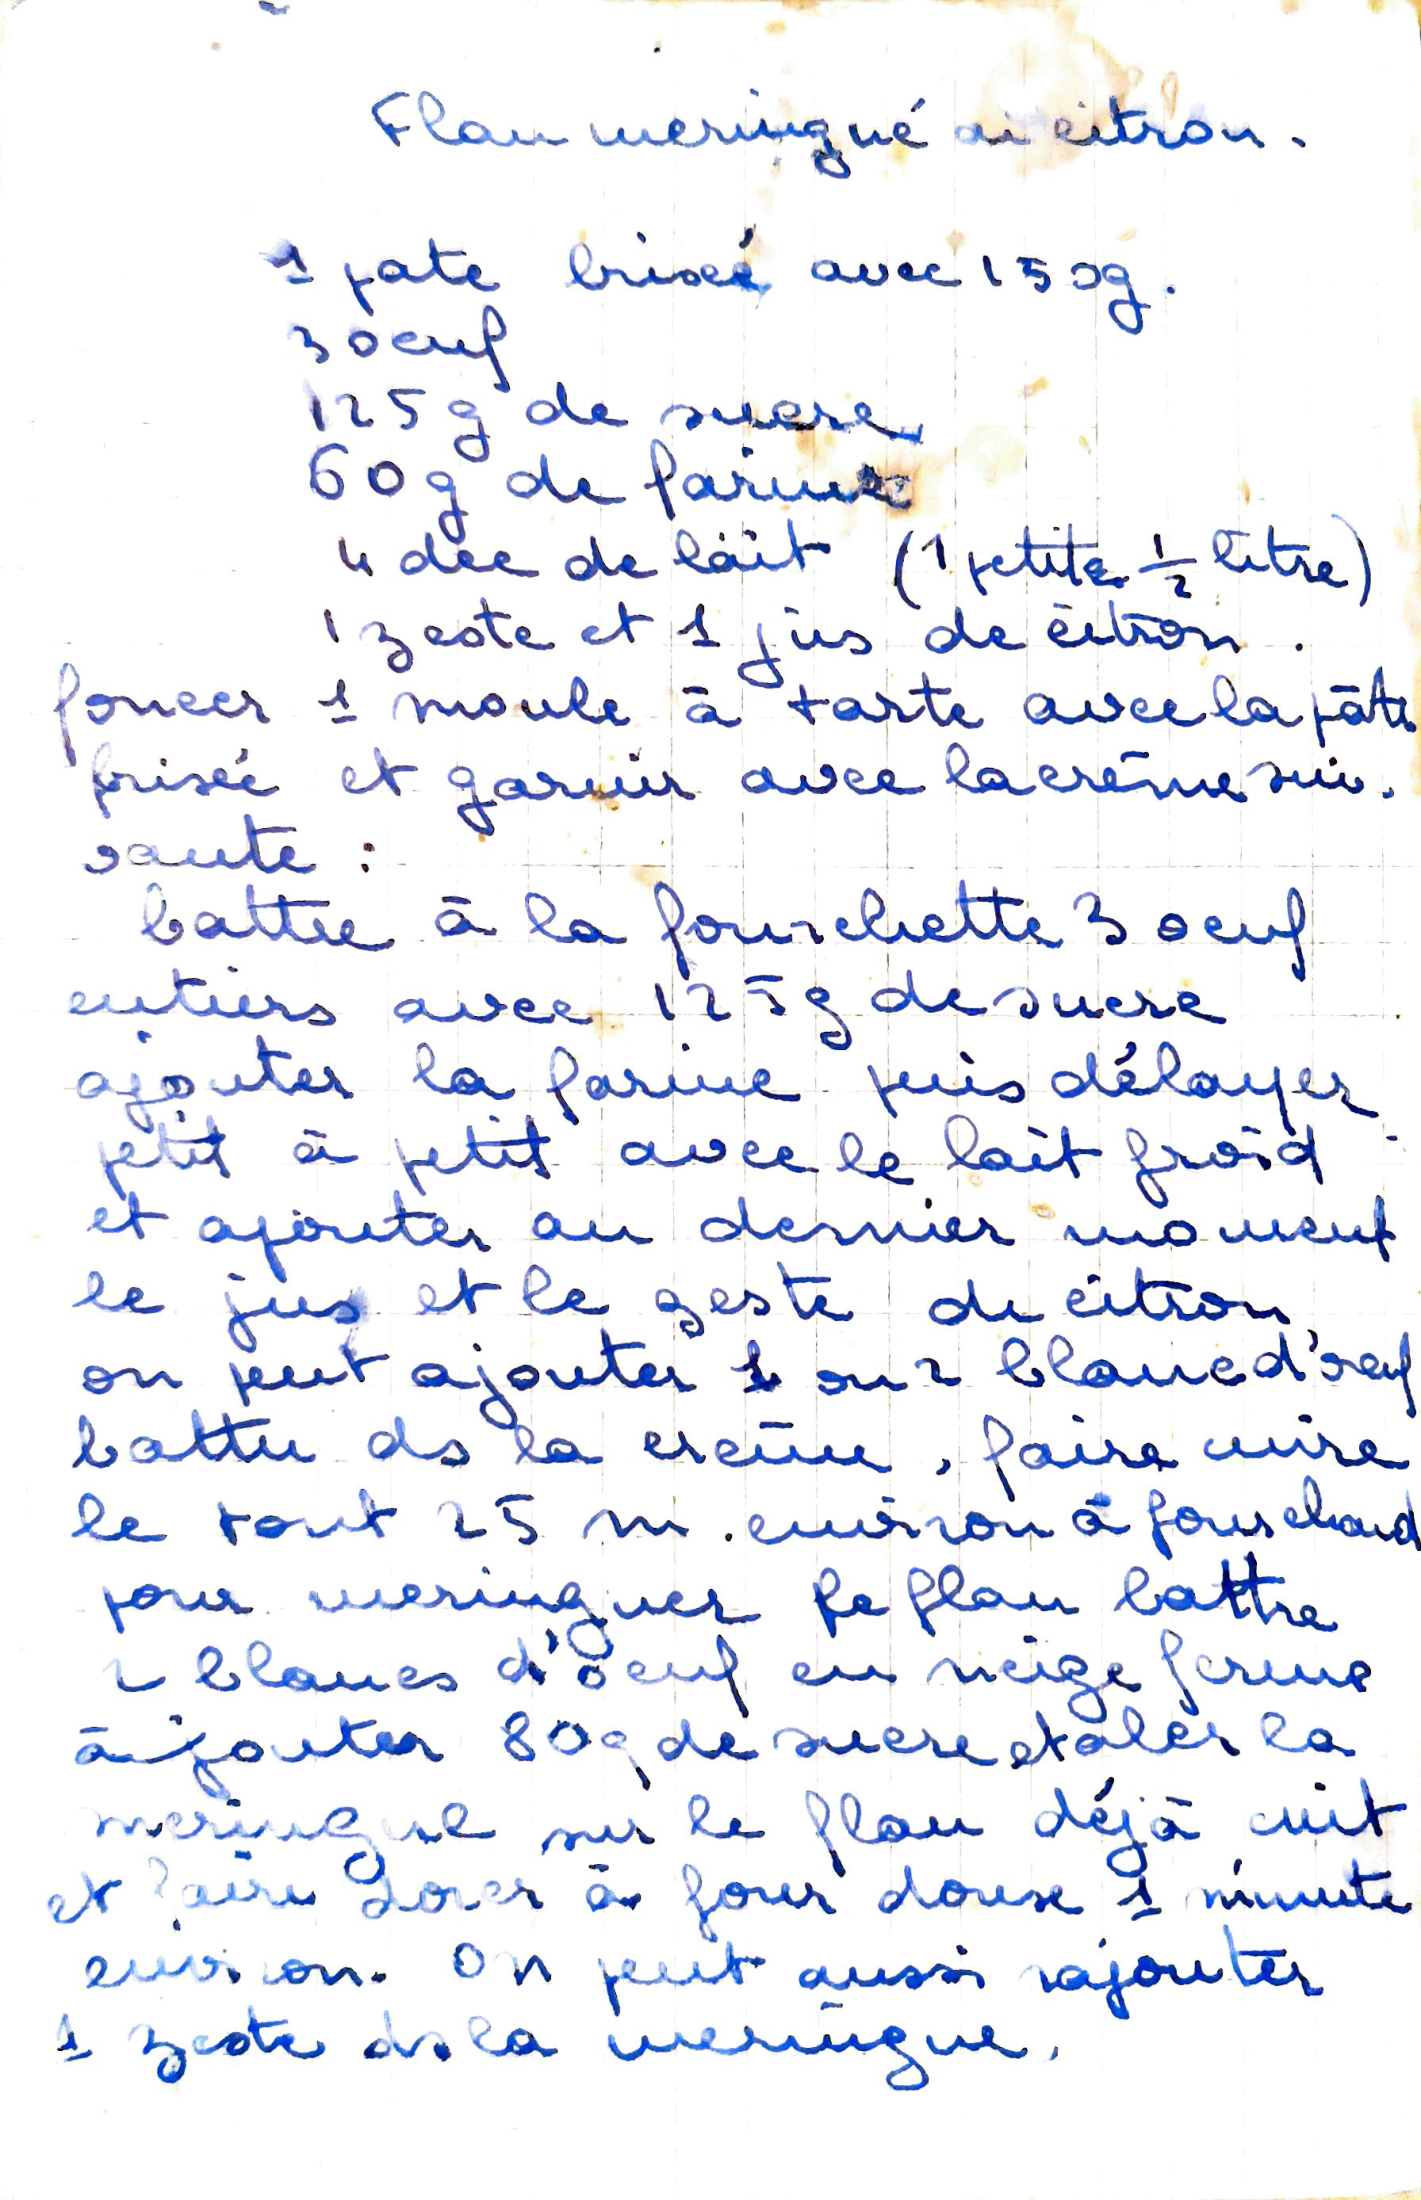 Flan meringué au citron.
1 pate briseé avec 150g.
3 oeuf
125g de sucre
60g de farine
4 dec de lait (1 petite 1/2 litre)
1 zeste et 1 jus de citron.
foncer 1 moule à tarte avec la pâte
brisée et garnir avec la crème sui-
vante :
battre à la fourchette 3 oeuf
entiers avec 125g de sucre
ajouter la farine puis délayer
petit à petit avec le lait froid
et ajouter au dernier moment
le jus et le zeste de citron
on peut ajouter 1 ou 2 blanc d'oeuf
battu ds la crème, faire cuire
le tout 25 m. environ à four chaud
pour meringuer le flan battre
2 blancs d'oeuf en neige ferme
ajouter 80g de sucre etaler la
meringue sur le flan déjà cuit
et faire dorer à four doux 1 minute
environ. On peut aussi rajouter
1 zeste ds la meringue.